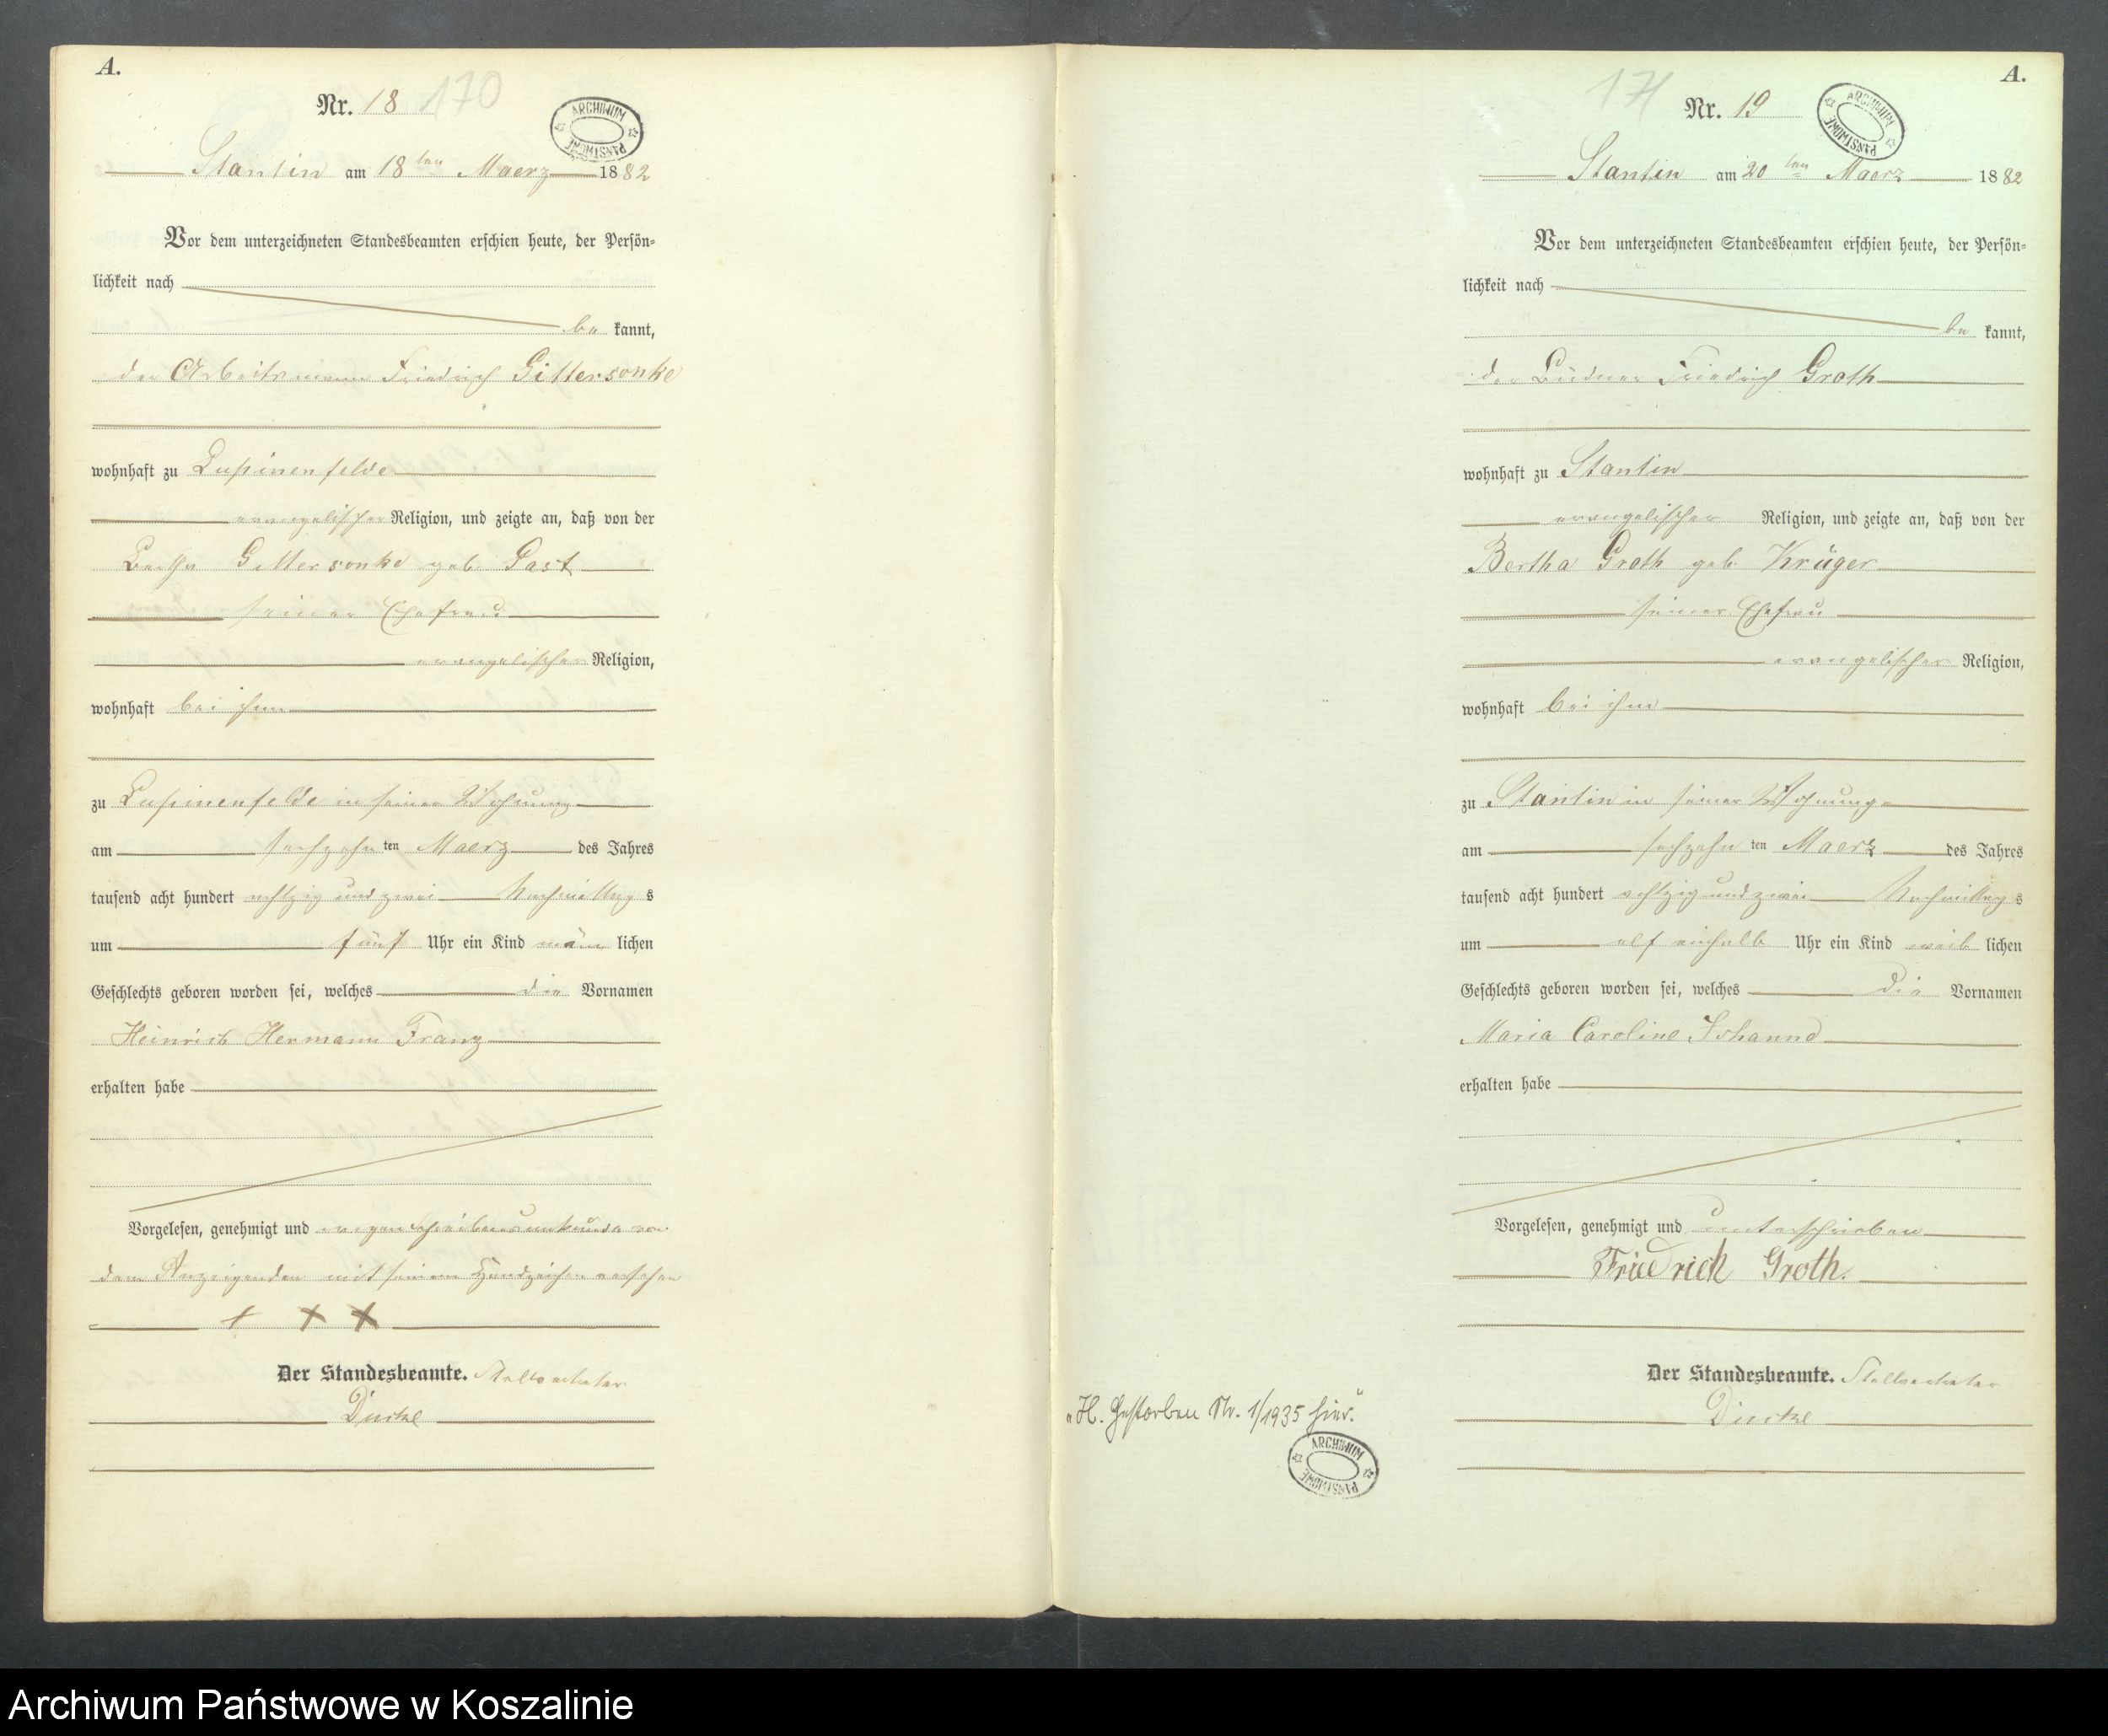 A.
Nr. 18 170
ARCHIWUM PAŃSTWOWE
Stantin am 18ten Maerz 1882
Vor dem unterzeichneten Standesbeamten erschien heute, der Persön-
lichkeit nach
be kannt,
der Arbeitsmann Friedrich Gittersonke
wohnhaft zu Lupinenfelde
evangelischer Religion, und zeigte an, daß von der
Bertha Gittersonke geb. Past
seiner Ehefrau
evangelischer Religion,
wohnhaft bei ihm
zu Lupinenfelde in seiner Wohnung
am sechzehn ten Maerz des Jahres
tausend acht hundert achtzig und zwei Nachmittag s
um fünf Uhr ein Kind män lichen
Geschlechts geboren worden sei, welches die Vornamen
Heinrich Hermann Franz
erhalten habe
Vorgelesen, genehmigt und wegen Schreibensunkunde von
dem Anzeigenden mit seinem Handzeichen versehen
+ + +
Der Standesbeamte. Stellvertreter
A.
171 Nr. 19
ARCHIWUM PAŃSTWOWE
Stantin am 20ten Maerz 1882
Vor dem unterzeichneten Standesbeamten erschien heute, der Persön-
lichkeit nach
be kannt,
der Büdner Friedrich Groth
wohnhaft zu Stantin
evangelischer Religion, und zeigte an, daß von der
Bertha Groth geb. Krüger
seiner Ehefrau
evangelischer Religion,
wohnhaft bei ihm
zu Stantin in seiner Wohnung
am sechzehn ten Maerz des Jahres
tausend acht hundert achtzig und zwei Nachmittag s
um elf einhalb Uhr ein Kind weib lichen
Geschlechts geboren worden sei, welches die Vornamen
Maria Caroline Johanne
erhalten habe
Vorgelesen, genehmigt und unterschrieben
Friedrich Groth.
Der Standesbeamte. Stellvertreter
„H. Gestorben Nr. 1/1935 hier.“
ARCHIWUM PAŃSTWOWE
Archiwum Państwowe w Koszalinie